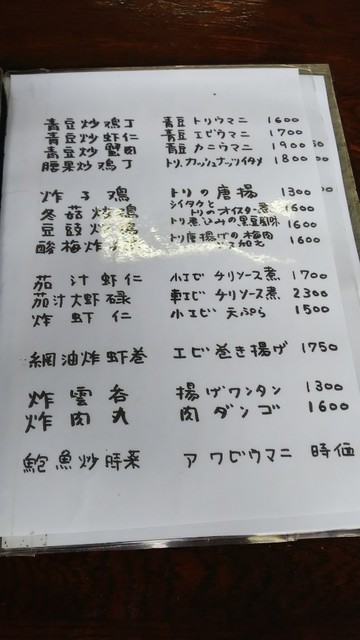 青豆炒鶏丁 青豆 トリウマニ 1600
青豆炒虾仁 青豆 エビウマニ 1700
青豆炒蟹肉 青豆 カニウマニ 1900
腰果炒鶏丁 トリ、カッシュナッツイタメ 1800
炸子鶏 トリの唐揚 1300
冬菇 シイタケと トリのオイスター煮 1600
豆豉 トリ煮込みの黒豆風味 1600
酸梅炸 トリ唐揚げの梅肉 1600
茄汁虾仁 小エビ チリソース煮 1700
茄汁大虾碌 車エビ チリソース煮 2300
炸虾仁 小エビ 天ぷら 1500
網油炸虾巻 エビ巻き揚げ 1750
炸雲呑 揚げワンタン 1300
炸肉丸 肉ダンゴ 1600
鮑魚炒時菜 アワビウマニ 時価